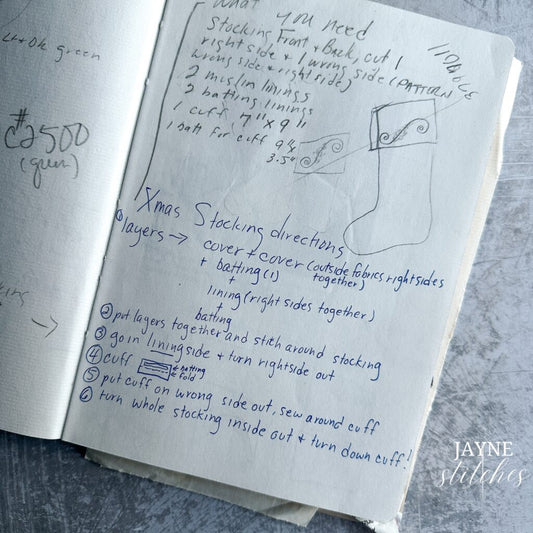 green
#
C2500
(green)
What you need
Stocking Front + Back, cut 1
right side + 1 wrong side (PATTERN
wrong side + right side)
2 muslin linings
2 batting linings
1 cuff 7" x 9"
1 batt for cuff 9"x
3.5"
Xmas Stocking directions
① layers → cover + cover (outside fabrics right sides
together)
+ batting (1)
+
lining (right sides together)
+
batting
② put layers together and stith around stocking
③ go in lining side + turn rightside out
④ cuff
batting
fold
⑤ put cuff on wrong side out, sew around cuff
⑥ turn whole stocking inside out + turn down cuff!
JAYNE
stitches